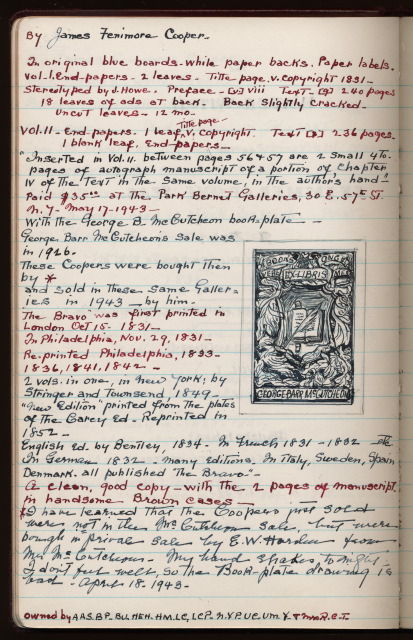 By James Fenimore Cooper.
In original blue boards - while paper backs. Paper labels.
Vol-I. End-papers - 2 leaves - Title page, v. copyright 1831 -
Stereotyped by J. Howe. Preface - viii Text - 240 pages
18 leaves of ads at back. Back slightly cracked -
Uncut leaves - 12 mo -
Title page
Vol. II - End-papers. 1 leaf, v. Copyright. Text 236 pages.
1 blank leaf, End-papers -
"Inserted in Vol. II. between pages 56 & 57 are 2 small 4to.
pages of autograph manuscript of a portion of chapter
IV of the Text in the same volume, in the author's hand"
Paid $35 at the Park Bernet Galleries, 30 E. 57th St.
N.Y. May, 17 - 1943 -
With the George B. McCutcheon book-plate -
George Barr McCutcheon's Sale was
in 1926.
These Coopers were bought then
by *
and sold in these same Galler-
ies in 1943 - by him.
The Bravo was first printed in
London Oct 15 - 1831 -
In Philadelphia, Nov. 29, 1831 -
Re-printed Philadelphia, 1833 -
1836, 1841, 1842 -
2 vols. in one, in New York; by
Stringer and Townsend, 1849 -
"New Edition" printed from the plates
of the Carey Ed - Reprinted in
1852 -
English Ed. by Bentley, 1834. In French 1831 - 1832 etc
In German 1832 - many editions. In Italy, Sweden, Spain
Denmark, all published The Bravo" -
A clean, good copy - with the 2 pages of manuscript
in handsome Brown cases
* I have learned that the Coopers just sold
were not in the McCutcheon sale, but were
bought in private sale by E.W. Harden from
Mr McCutcheon. My hand shakes to night
I don't feel well, so the Book-plate drawing is
bad - April 18 - 1943 -
BOOKS
EX LIBRIS
GEORGE BARR McCUTCHEON
Owned by AAS. BP. BU. HEH. HM. LC, LCP. N.YP. UC. UM. Y.